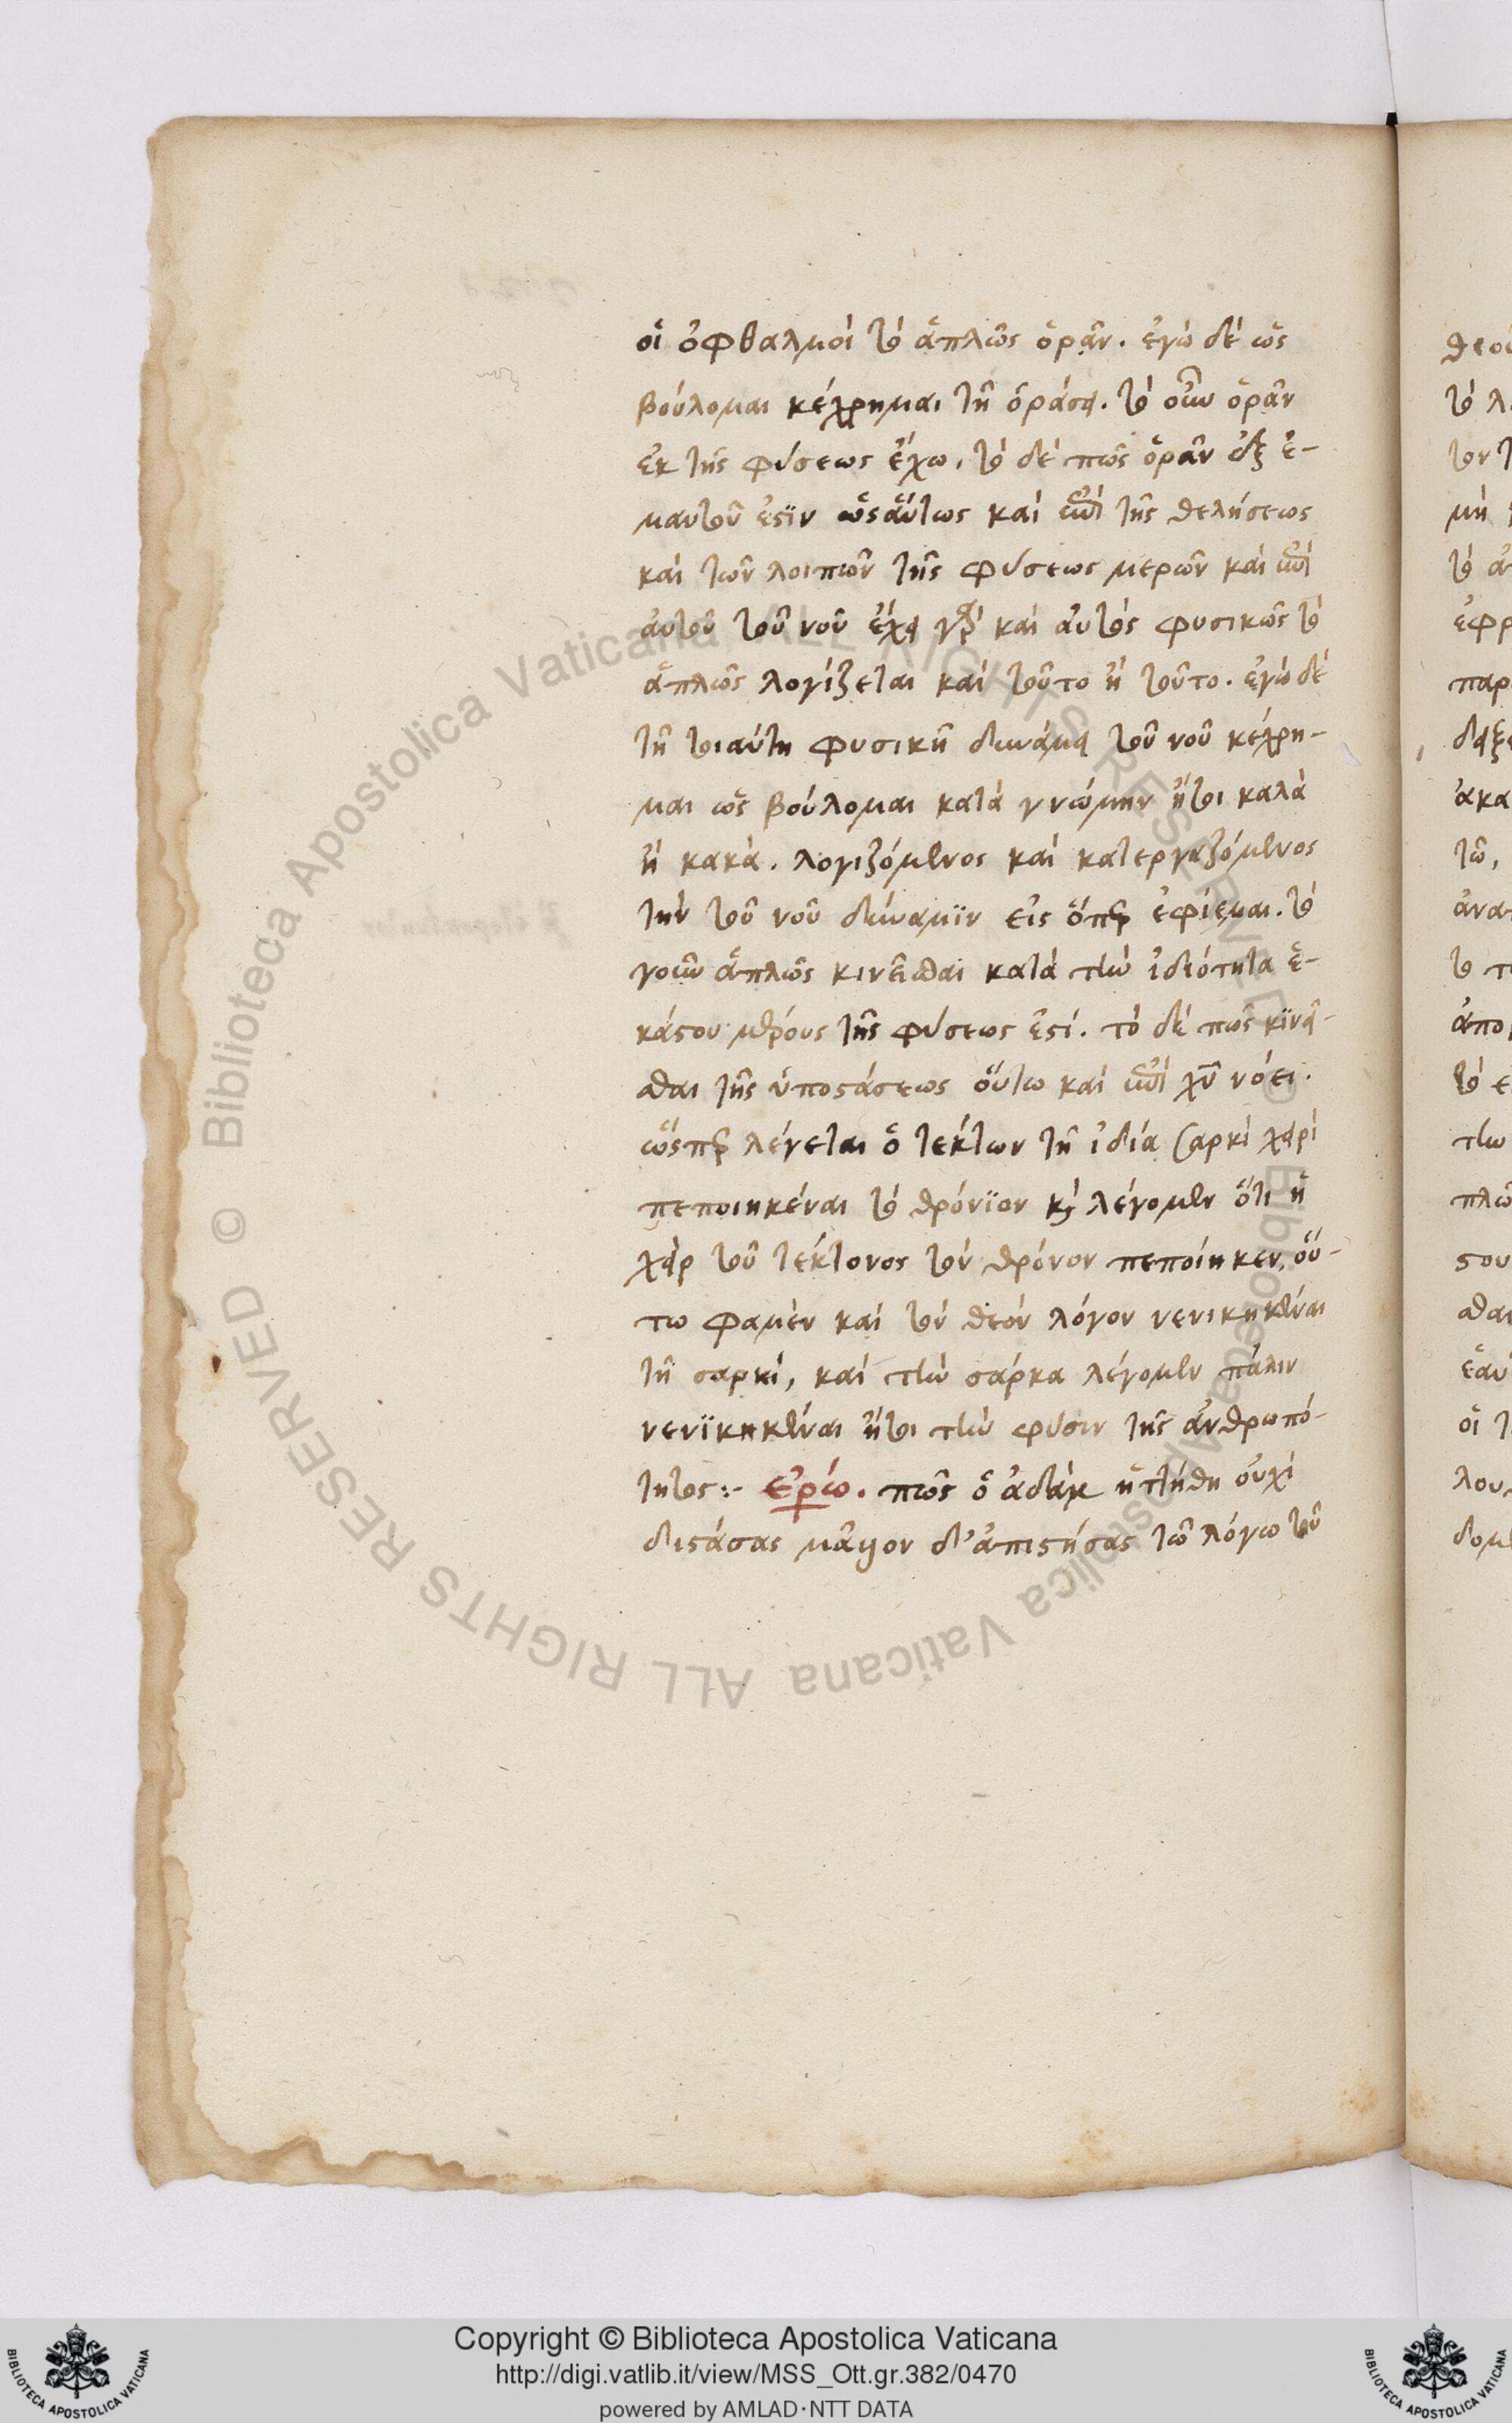 οἱ ὀφθαλμοὶ τὸ ἁπλῶς ὁρᾶν. ἐγὼ δὲ ὡς
βούλομαι κέχρημαι τῇ ὁράσει. τὸ οὖν ὁρᾶν
ἐκ τῆς φύσεως ἔχω, τὸ δὲ πῶς ὁρᾶν ἐξ ἐ-
μαυτοῦ ἐστϊν ὡσαύτως καὶ ἐπὶ τῆς θελήσεως
καὶ τῶν λοιπῶν τῆς φύσεως μερῶν καὶ ἐπὶ
αὐτοῦ τοῦ νοῦ ἔχει γὰρ καὶ αὐτὸς φυσικῶς τὸ
ἁπλῶς λογίζεται καὶ τοῦτο ἢ τοῦτο. ἐγὼ δὲ
τῇ τοιαύτη φυσικῇ δυνάμει τοῦ νοῦ κέχρη-
μαι ὡς βούλομαι κατὰ γνώμην ἤτοι καλὰ
ἢ κακὰ. λογιζόμενος καὶ κατεργαζόμενος
τὴν τοῦ νοῦ δύναμϊν εἰς ὅπερ ἐφίεμαι. τὸ
γοῦν ἁπλῶς κινεῖσθαι κατὰ τὴν ἰδιότητα ἑ-
κάστου μέρους τῆς φύσεως ἐστί. τὸ δὲ πῶς κϊνεῖ-
σθαι τῆς ὑποστάσεως οὕτω καὶ ἐπὶ χυ νόει.
ὥσπερ λέγεται ὁ τέκτων τῇ ἰδία σαρκὶ χειρὶ
πεποιηκέναι τὸ θρόνϊον κὶ λέγομεν ὅτι ἡ
χεὶρ τοῦ τέκτονος τὸν θρόνον πεποίηκεν, οὕ-
τω φαμὲν καὶ τὸν θεὸν λόγον νενικηκέναι
τῇ σαρκί, καὶ τὴν σάρκα λέγομεν πάλιν
νενϊκηκέναι ἤτοι τὴν φύσιν τῆς ἀνθρωπό-
τητος:- ἐρώ. πῶς ὁ ἀδὰμ ἡττήθη οὐχὶ
διστάσας μᾶλλον δ' ἀπιστήσας τῶ λόγω τοῦ
Copyright © Biblioteca Apostolica Vaticana
http://digi.vatlib.it/view/MSS_Ott.gr.382/0470
powered by AMLAD·NTT DATA